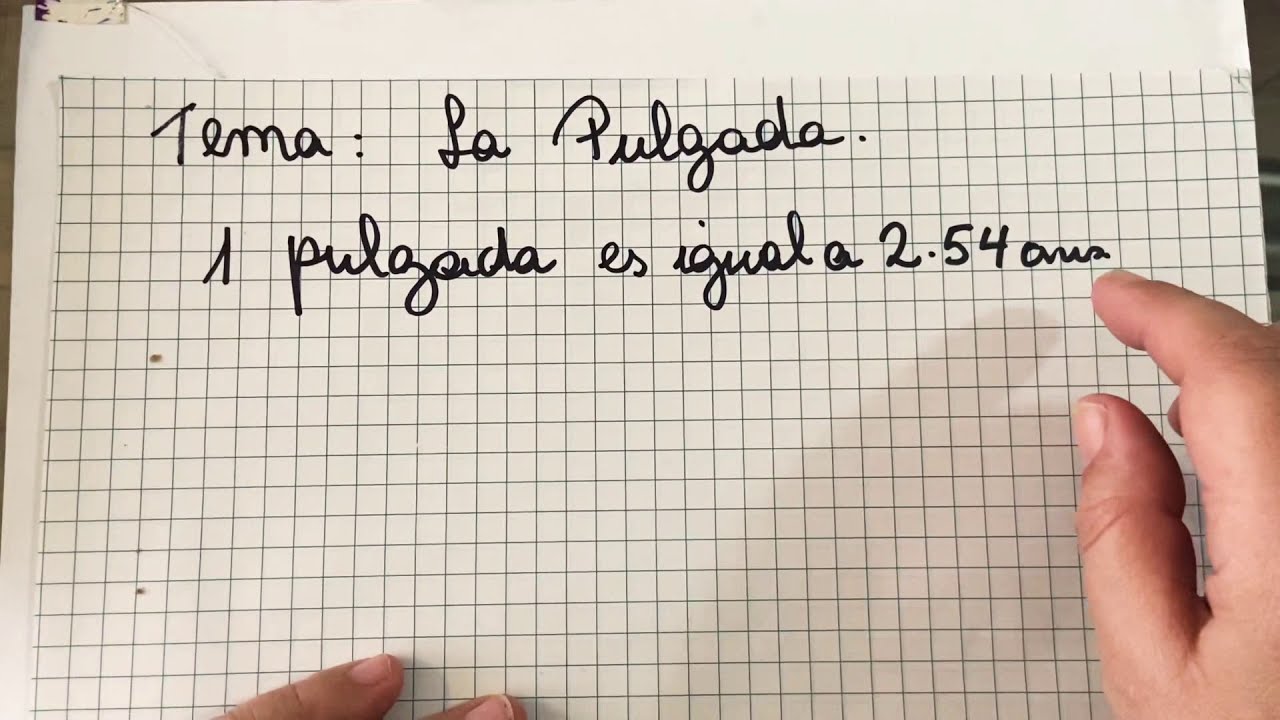 Tema: La Pulgada.
1 pulgada es igual a 2.54 cms